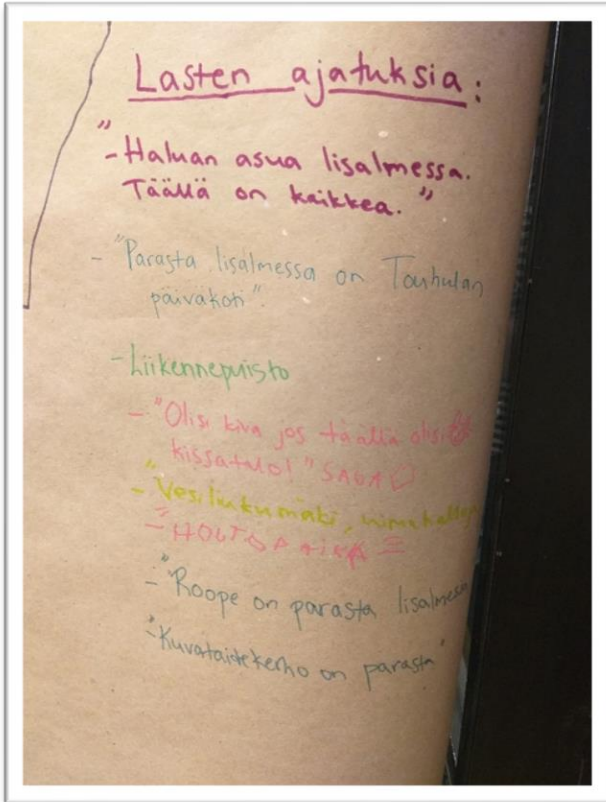 Lasten ajatuksia:
"
-Haluan asua Iisalmessa.
Täällä on kaikkea."
- "Parasta Iisalmessa on Touhulan
päiväkoti".
-Liikennepuisto
- "Olisi kiva jos täällä olisi
kissatalo!" SAGA ♡
- "Vesiliukumäki, uimahalli
- "Roope on parasta Iisalmessa
- "Kuvataidekerho on parasta"